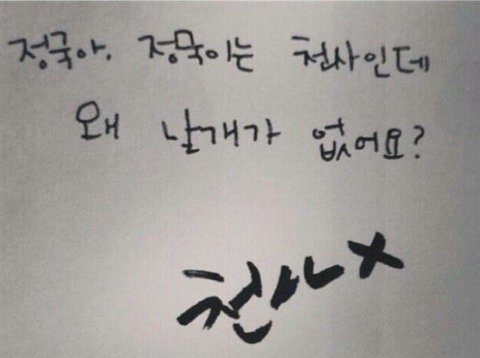 정국아. 정국이는 천사인데
왜 날개가 없어요?
천사X